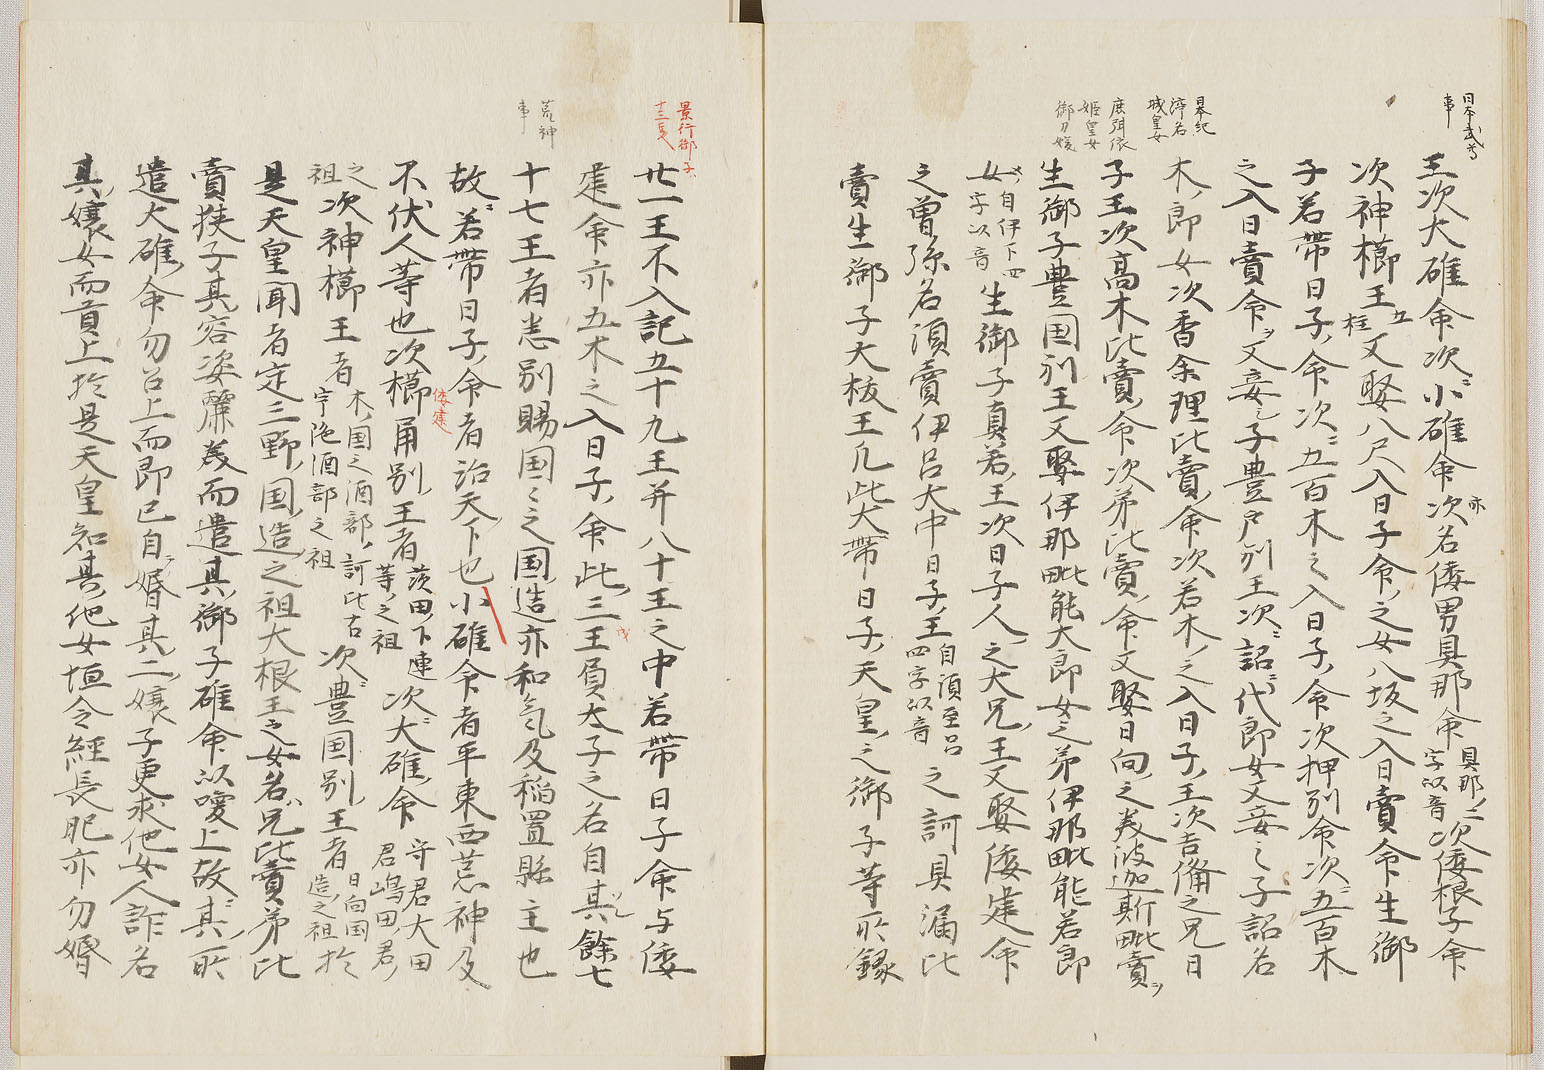 日本武尊
事
王次大碓命次小碓命次亦名倭男具那命具那二字以音次倭根子命
次神櫛王五柱又娶八尺入日子命之女八坂之入日賣命生御
子若帶日子命次五百木之入日子命次押別命次五百木
之入日賣命又妾之子豊戸別王次沼代郎女又妾之子沼名
日本紀
渟名
城皇女
木郎女次香余理比賣命次若木之入日子王次吉備之兄日
子王次高木比賣命次弟比賣命又娶日向之美波迦斯毗賣
麻弭依
姫皇女
御刀媛
生御子豊国別王又娶伊那毗能大郎女之弟伊那毗能若郎
女自伊下四字以音生御子真若王次日子人之大兄王又娶倭建命
之曾孫名須賣伊呂大中日子王自須至呂四字以音之訶具漏比
賣生御子大枝王凡此大帶日子天皇之御子等所録
景行御子
廿一王不入記五十九王并八十王之中若帶日子命与倭
建命亦五木之入日子命此三王負太子之名自其餘七
十七王者悉別賜国々之国造亦和氣及稲置縣主也
荒神
事
故若帶日子命者治天下也小碓命者平東西荒神及
倭建
不伏人等也次櫛甬別王者茨田下連等之祖次大碓命守君大田君嶋田君
之祖次神櫛王者木国之酒部訶比古宇陀酒部之祖次豊国別王者日向国造之祖於
是天皇聞者定三野国造之祖大根王之女名兄比賣弟比
賣挟子其容姿麗美而遣其御子碓命以喚上故其所
遣大碓命勿召上而即已自婚其二嬢子更求他女人詐名
其嬢女而貢上於是天皇知其他女垣令經長眤亦勿婚